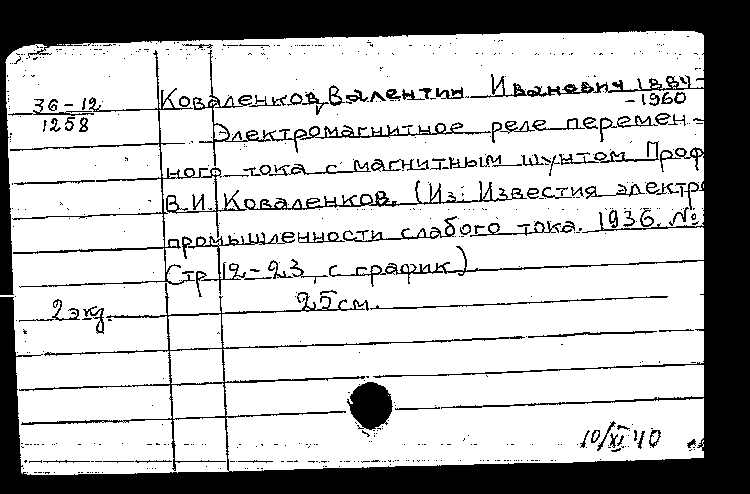 36-12
1258
Коваленков, Валентин Иванович 1884-
-1960
Электромагнитное реле перемен-
ного тока с магнитным шунтом Проф
В.И. Коваленков. (Из: Известия электро
промышленности слабого тока. 1936. №
Стр 12-23, с график.)
2 экз. 25 см.
10/XI 40